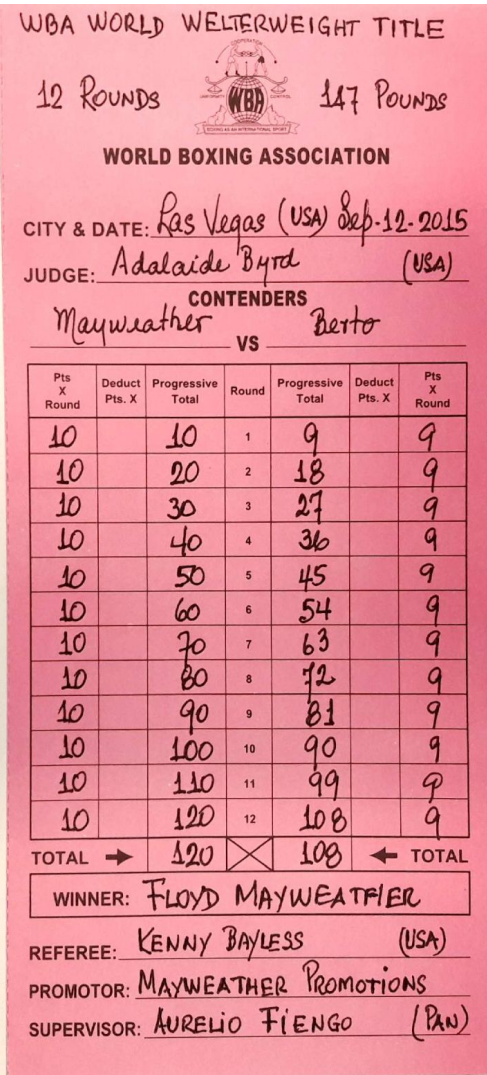 WBA WORLD WELTERWEIGHT TITLE
COOPERATION
12 ROUNDS UNIFORMITY WBA CONTROL 147 POUNDS
BOXING AS AN INTERNATIONAL SPORT
WORLD BOXING ASSOCIATION
CITY & DATE: Las Vegas (USA) Sep-12-2015
JUDGE: Adalaide Byrd (USA)
CONTENDERS
Mayweather VS Berto
Pts X Round Deduct Pts. X Progressive Total Round Progressive Total Deduct Pts. X Pts X Round
10 10 1 9 9
10 20 2 18 9
10 30 3 27 9
10 40 4 36 9
10 50 5 45 9
10 60 6 54 9
10 70 7 63 9
10 80 8 72 9
10 90 9 81 9
10 100 10 90 9
10 110 11 99 9
10 120 12 108 9
TOTAL → 120 108 ← TOTAL
WINNER: FLOYD MAYWEATHER
REFEREE: KENNY BAYLESS (USA)
PROMOTOR: MAYWEATHER PROMOTIONS
SUPERVISOR: AURELIO FIENGO (PAN)